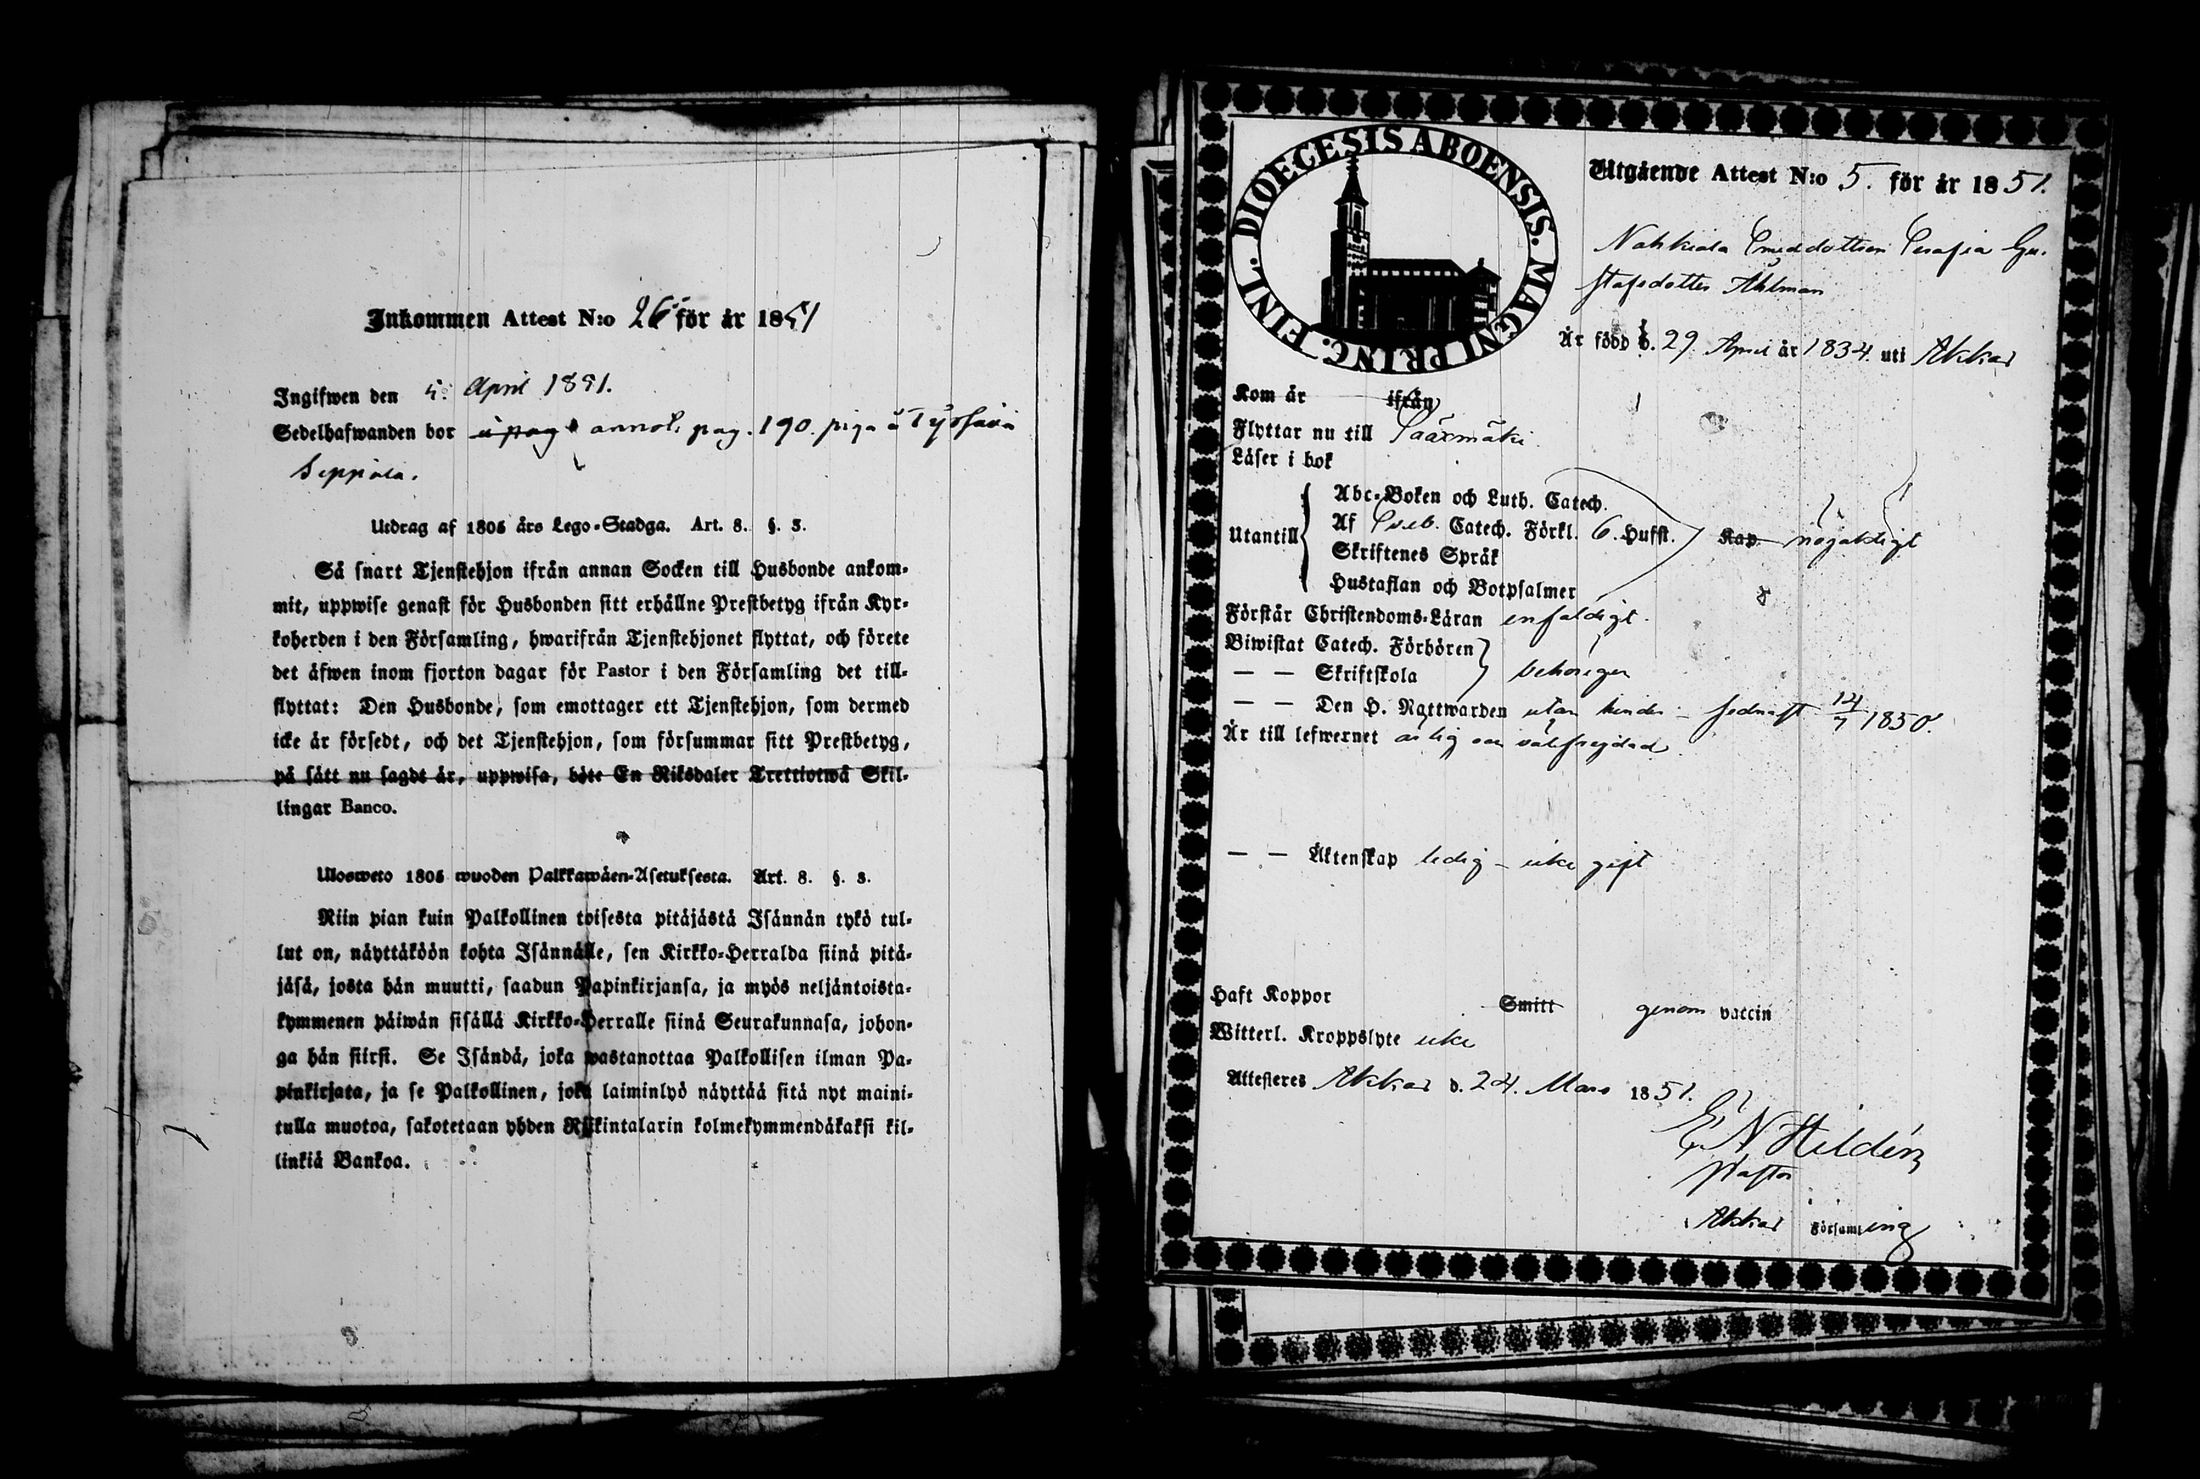 Inkommen Attest N:o 26 för år 1851
Ingifwen den 5. April 1851.
Sedelhafwanden bor annot. pag. 190. piga å
Seppälä.
Utdrag af 1805 års Lego-Stadga. Art. 8. §. 3.
Så snart Tjenstehjon ifrån annan Socken till Husbonde ankom-
mit, uppwise genast för Husbonden sitt erhållne Prestbetyg ifrån Kyr-
koherden i den Församling, hwarifrån Tjenstehjonet flyttat, och förete
det äfwen inom fjorton dagar för Pastor i den Församling det till-
flyttat: Den Husbonde, som emottager ett Tjenstehjon, som dermed
icke är försedt, och det Tjenstehjon, som försummar sitt Prestbetyg,
på sätt nu sagdt är, uppwisa, böte En Riksdaler Trettiotwå Skil-
lingar Banco.
Ulosweto 1805 wuoden Palkkawäen-Asetuksesta. Art. 8. §. 3.
Niin pian kuin Palkollinen toisesta pitäjästä Isännän tykö tul-
lut on, näyttäköön kohta Isännälle, sen Kirkko-Herralda siinä pitä-
jäsä, josta hän muutti, saadun Papinkirjansa, ja myös neljäntoista-
kymmenen päiwän sisällä Kirkko-Herralle siinä Seurakunnasa, johon-
ga hän siirsi. Se Isändä, joka wastanottaa Palkollisen ilman Pa-
pinkirjata, ja se Palkollinen, joka laiminlyö näyttää sitä nyt maini-
tulla muotoa, sakotetaan yhden Riikintalarin kolmekymmendäkaksi kil-
linkiä Bankoa.
DIOECESIS ABOENSIS. MAGNI PRINC. FINL.
Utgående Attest N:o 5. för år 1851.
Nahkiala Smeddottren Serafia Gu-
stafsdotter Ahlman
Är född d. 29 April år 1834. uti Akkas
Kom år ifrån
Flyttar nu till Sääxmäki
Läser i bok
Utantill
Abc-Boken och Luth. Catech.
Af Sveb. Catech. Förkl. 6. Hufst. Kap. nöjaktigt
Skriftenes Språk
Hustaflan och Botpsalmer
Förstår Christendoms-Läran enfaldigt.
Biwistat Catech. Förhören
— — Skriftskola behörigen
— — Den H. Nattwarden utan hinder - sednast 14/7 1850.
Är till lefwernet ärlig och välfrejdad
— — Äktenskap ledig - icke gift
Haft Koppor Smitt genom vaccin
Witterl. Kroppslyte icke
Attesteres Akkas d. 24. Mars 1851.
E N Hildén
Pastor
Akkas Församling